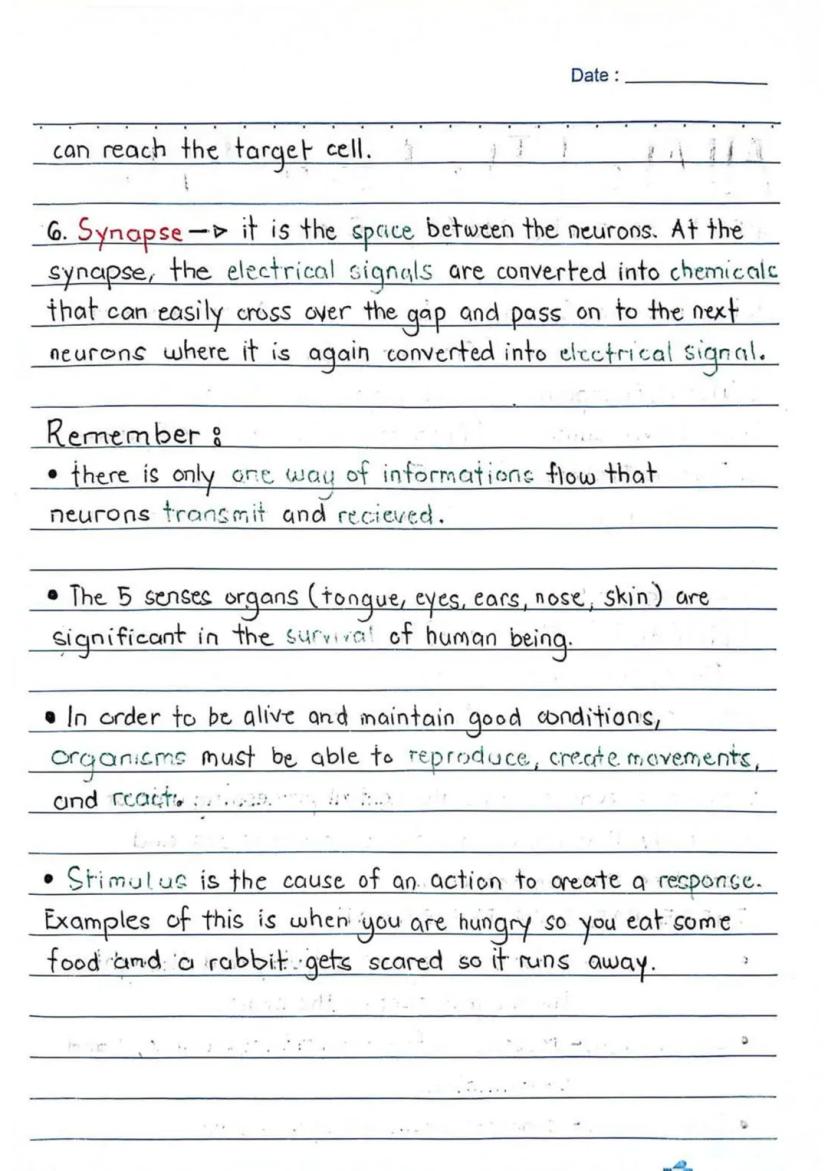 Date :
can reach the target cell.
6. Synapse → it is the space between the neurons. At the
synapse, the electrical signals are converted into chemicals
that can easily cross over the gap and pass on to the next
neurons where it is again converted into electrical signal.
Remember :
• there is only one way of informations flow that
neurons transmit and recieved.
• The 5 senses organs (tongue, eyes, ears, nose, skin) are
significant in the survival of human being.
• In order to be alive and maintain good conditions,
organisms must be able to reproduce, create movements,
and react.
• Stimulus is the cause of an action to create a response.
Examples of this is when you are hungry so you eat some
food and a rabbit gets scared so it runs away.